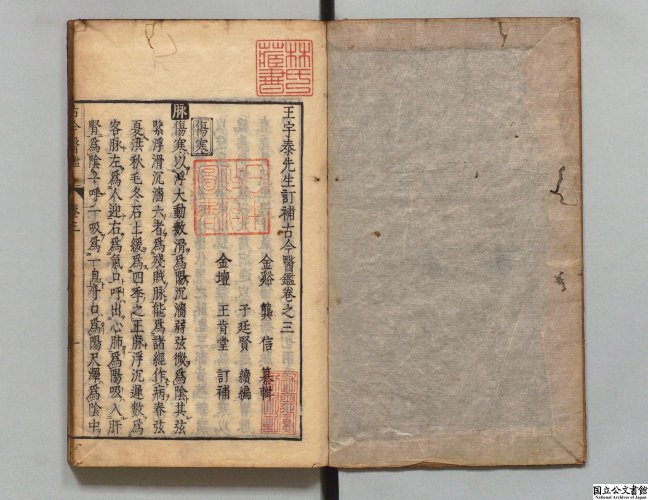 王宇泰先生訂補古今醫鑑卷之三
金谿 龔信 纂輯
子廷賢 續編
金壇 王肯堂 訂補
傷寒
脉傷寒以浮大動數滑爲陽沉濇弱弦微爲陰其弦
緊浮滑沉濇六者爲殘賊脉能爲諸經作病春弦
夏洪秋毛冬石土緩爲四季之正脉浮沉遲數爲
客脉左爲人迎右爲氣口呼出心肺爲陽吸入肝
腎爲陰一呼一吸爲一息寸口爲陽尺澤爲陰中
林氏
藏書
国立公文書館
National Archives of Japan